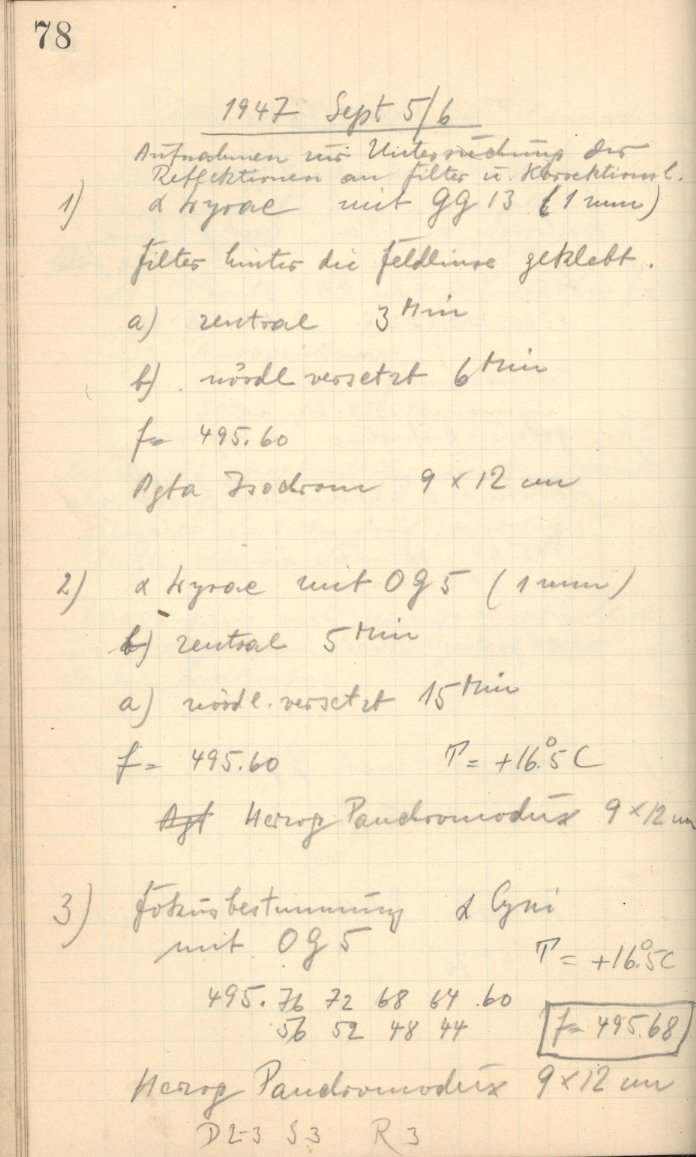 78
1947 Sept 5/6
Aufnahmen zur Untersuchung der
Reflektionen an Filter u. Korrektionsl.
1) α Lyrae mit GG 13 (1 mm)
Filter hinter die Feldlinse geklebt.
a) zentral 3 Min
b) nördl versetzt 6 Min
f= 495.60
Agfa Isochrom 9 x 12 cm
2) α Lyrae mit OG 5 (1 mm)
b) zentral 5 Min
a) nördl. versetzt 15 Min
f= 495.60 T= +16.°5 C
Agf Herzog Panchromodux 9 x 12 cm
3) Fokusbestimmung α Cygni
mit OG 5
T= +16.°5 C
495.76 72 68 64 .60
56 52 48 44 f= 495.68
Herzog Panchromodux 9 x 12 cm
D2-3 S3 R3